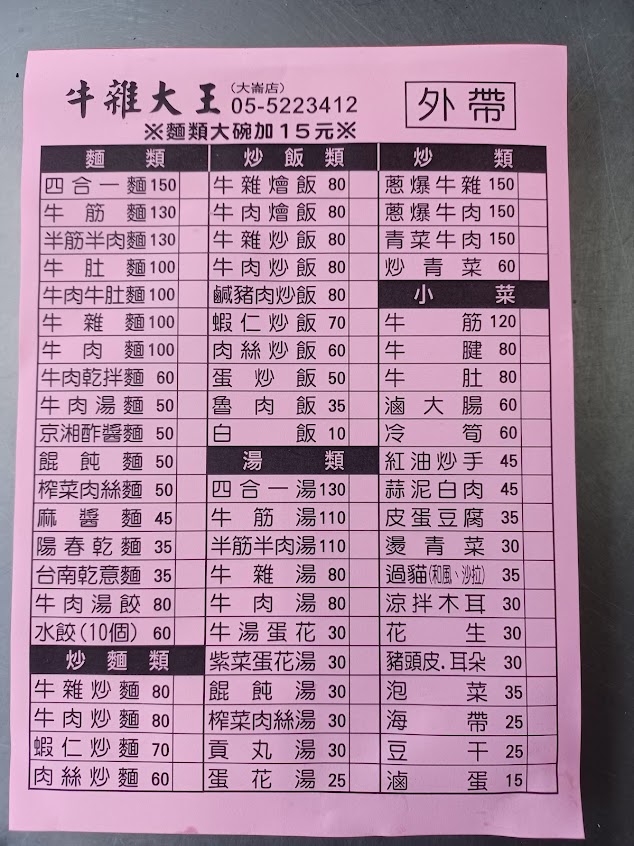 牛雜大王
(大崙店)
05-5223412
外帶
※麵類大碗加15元※
麵類
四合一麵 150
牛筋麵 130
半筋半肉麵 130
牛肚麵 100
牛肉牛肚麵 100
牛雜麵 100
牛肉麵 100
牛肉乾拌麵 60
牛肉湯麵 50
京湘酢醬麵 50
餛飩麵 50
榨菜肉絲麵 50
麻醬麵 45
陽春乾麵 35
台南乾意麵 35
牛肉湯餃 80
水餃(10個) 60
炒麵類
牛雜炒麵 80
牛肉炒麵 80
蝦仁炒麵 70
肉絲炒麵 60
炒飯類
牛雜燴飯 80
牛肉燴飯 80
牛雜炒飯 80
牛肉炒飯 80
鹹豬肉炒飯 80
蝦仁炒飯 70
肉絲炒飯 60
蛋炒飯 50
魯肉飯 35
白飯 10
湯類
四合一湯 130
牛筋湯 110
半筋半肉湯 110
牛雜湯 80
牛肉湯 80
牛湯蛋花 30
紫菜蛋花湯 30
餛飩湯 30
榨菜肉絲湯 30
貢丸湯 30
蛋花湯 25
炒類
蔥爆牛雜 150
蔥爆牛肉 150
青菜牛肉 150
炒青菜 60
小菜
牛筋 120
牛腱 80
牛肚 80
滷大腸 60
冷筍 60
紅油炒手 45
蒜泥白肉 45
皮蛋豆腐 35
燙青菜 30
過貓(和風、沙拉) 35
涼拌木耳 30
花生 30
豬頭皮.耳朵 30
泡菜 35
海帶 25
豆干 25
滷蛋 15